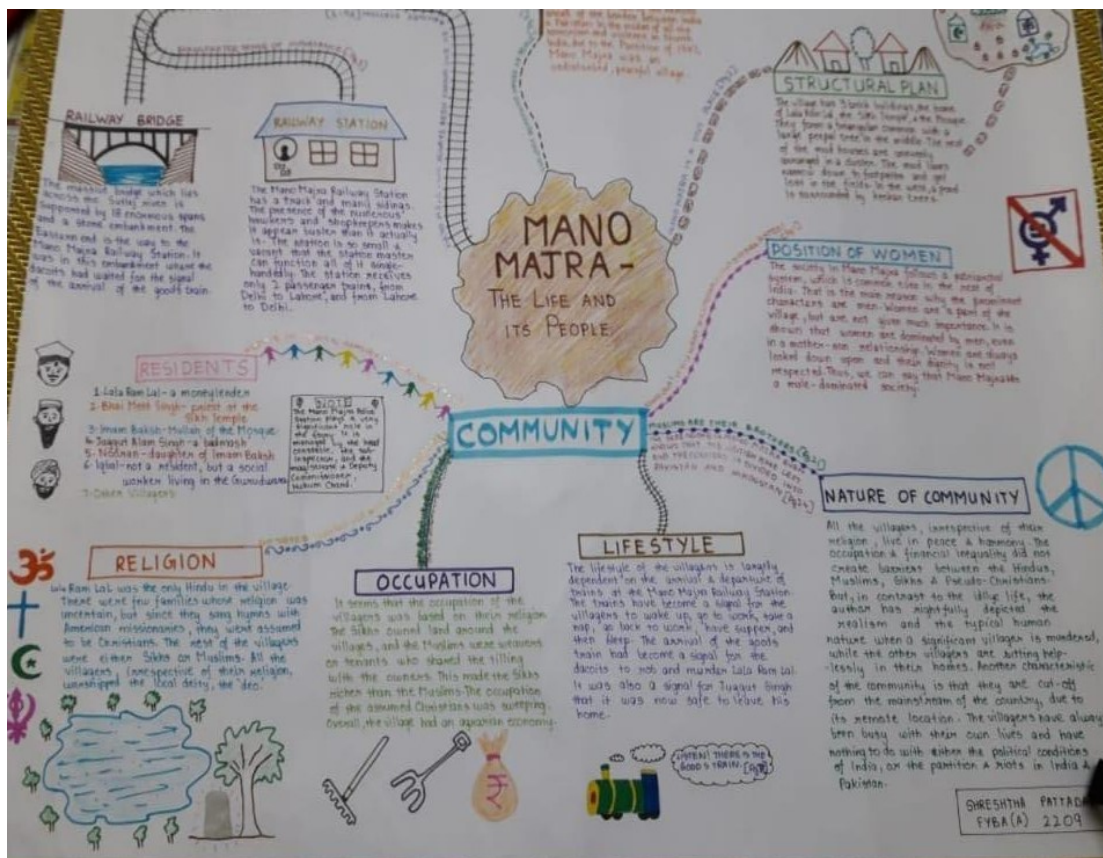 areas of the border between India
& Pakistan. In the midst of all the
India, due to the Partition of 1947,
Mano Majra was an
undisturbed, peaceful village.
RAILWAY BRIDGE
The massive bridge which lies
across the Sutlej river is
supported by 18 enormous spans
and a stone embankment. The
Eastern end is the way to the
Mano Majra Railway Station. It
was in this embankment where the
dacoits had waited for the signal
of the arrival of the goods train.
RAILWAY STATION
The Mano Majra Railway Station
has a track and many sidings.
The presence of the numerous
hawkers and shopkeepers makes
it appear busier than it actually
is. The station is so small &
vacant that the station master
can function all of it single-
handedly. The station receives
only 2 passenger trains, from
Delhi to Lahore, and from Lahore
to Delhi.
MANO
MAJRA -
THE LIFE AND
ITS PEOPLE
STRUCTURAL PLAN
The village has 3 brick buildings, the home
of Lala Ram Lal, the Sikh Temple, & the Mosque.
They form a triangular common with a
large peepal tree in the middle. The rest
of the mud houses are unevenly
arranged in a cluster. The mud lanes
narrow down to footpaths and get
lost in the fields. In the west, a pond
is surrounded by keekar trees.
POSITION OF WOMEN
The society in Mano Majra follows a patriarchal
system, which is common even in the rest of
India. That is the main reason why the prominent
characters are men. Women are a part of the
village, but are not given much importance. It is
shown that women are dominated by men, even
in a mother-son relationship. Women are always
looked down upon and their dignity is not
respected. Thus, we can say that Mano Majra is
a male-dominated society.
RESIDENTS
1. Lala Ram Lal - a moneylender
2. Bhai Meet Singh - priest of the
Sikh Temple
3. Imam Baksh - Mullah of the Mosque
4. Juggut Alam Singh - a badmash
5. Nooran - daughter of Imam Baksh
6. Iqbal - not a resident, but a social
worker living in the Gurudwara
7. Other Villagers
NOTE
The Mano Majra Police
Station plays a very
significant role in
the story. It is
managed by the head
constable, the sub-
inspector, and the
magistrate & Deputy
Commissioner,
Hukum Chand.
COMMUNITY
MUSLIMS ARE THEIR BROTHERS
PAKISTAN AND HINDUSTAN
NATURE OF COMMUNITY
All the villagers, irrespective of their
religion, live in peace & harmony. The
occupation & financial inequality did not
create barriers between the Hindus,
Muslims, Sikhs & Pseudo-Christians.
But, in contrast to the idlyic life, the
author has rightfully depicted the
realism and the typical human
nature when a significant villager is murdered,
while the other villagers are sitting help-
lessly in their homes. Another characteristic
of the community is that they are cut-off
from the mainstream of the country, due to
its remote location. The villagers have always
been busy with their own lives and have
nothing to do with either the political conditions
of India, or the partition & riots in India &
Pakistan.
RELIGION
Lala Ram Lal was the only Hindu in the village.
There were few families whose religion was
uncertain, but since they sung hymns with
American missionaries, they were assumed
to be Christians. The rest of the villagers
were either Sikhs or Muslims. All the
villagers, irrespective of their religion,
worshipped the local deity, the 'deo'.
OCCUPATION
It seems that the occupation of the
villagers was based on their religion.
The Sikhs owned land around the
villages, and the Muslims were weavers
or tenants who shared the tilling
with the owners. This made the Sikhs
richer than the Muslims. The occupation
of the assumed Christians was sweeping.
Overall, the village had an agrarian economy.
LIFESTYLE
The lifestyle of the villagers is largely
dependent on the arrival & departure of
trains at the Mano Majra Railway Station.
The trains have become a signal for the
villagers to wake up, go to work, take a
nap, go back to work, have supper, and
then sleep. The arrival of the goods
train had become a signal for the
dacoits to rob and murder Lala Ram Lal.
It was also a signal for Juggut Singh
that it was now safe to leave his
home.
₹
LISTEN! THERE IS THE
GOODS TRAIN.
SHRESHTHA PATTADA
FYBA(A) 2209